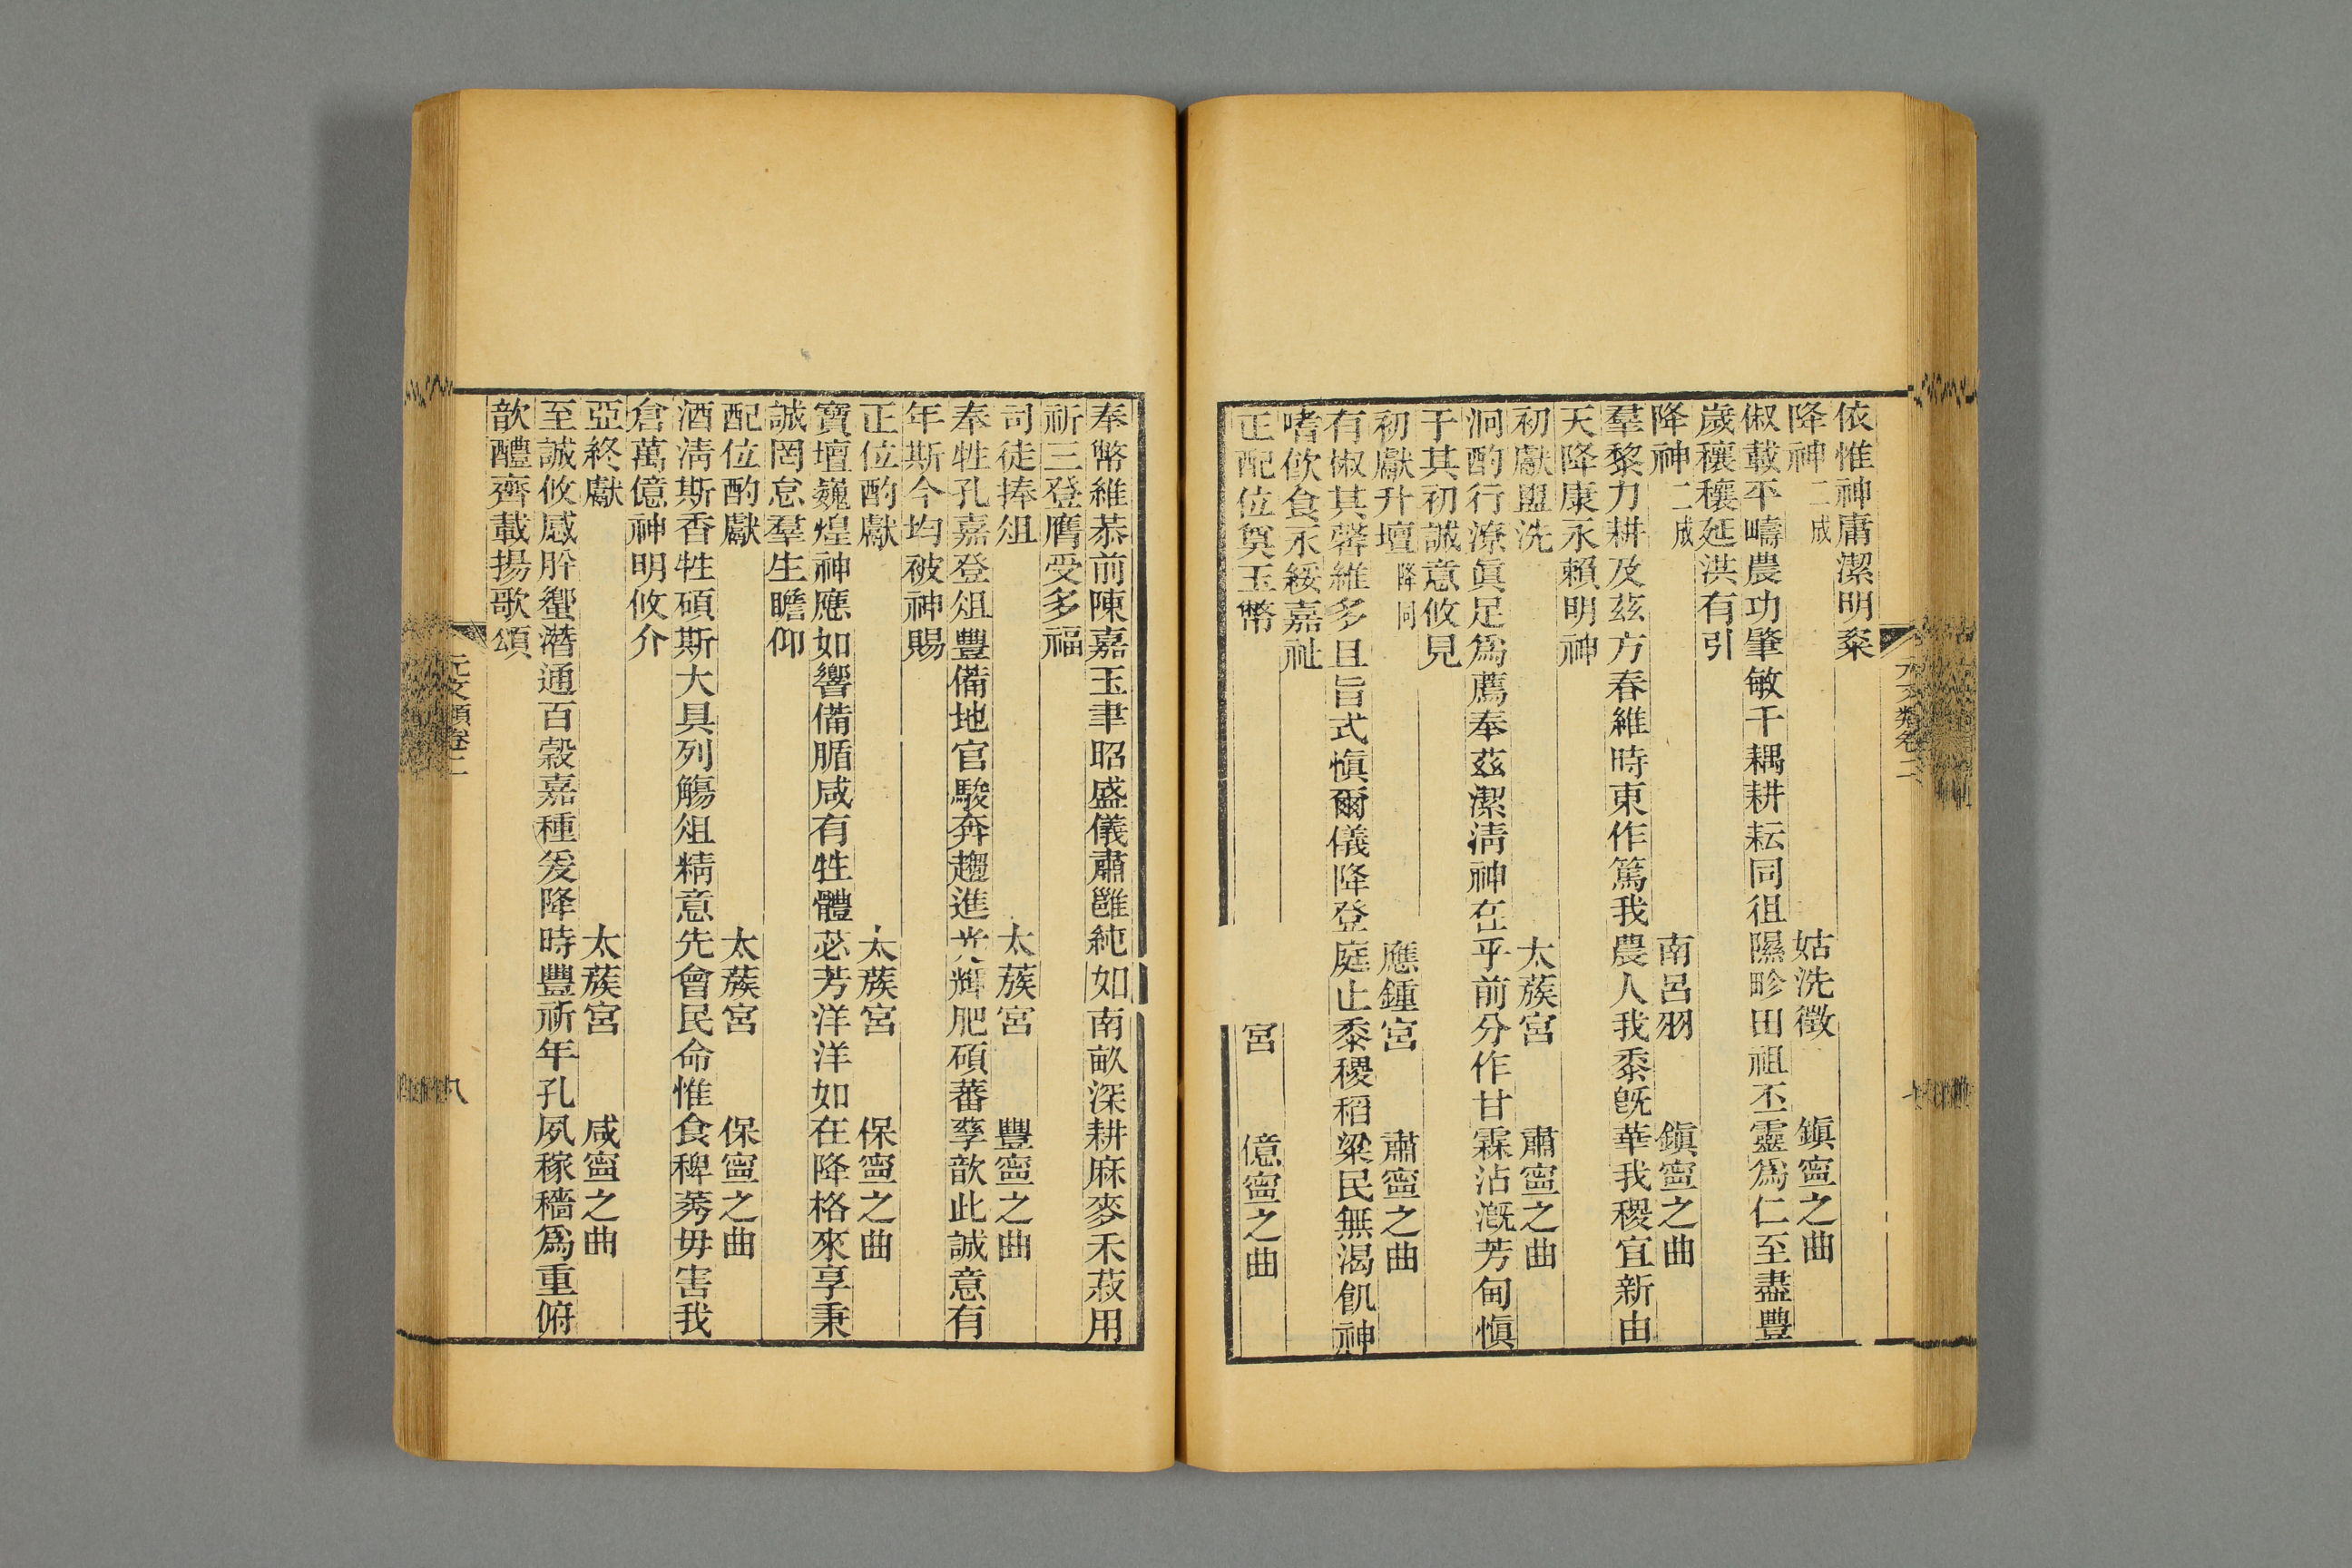 依惟神庸潔明粢
降神二成 姑洗徵 鎭寍之曲
俶載平疇農功肇敏千耦耕耘同徂隰畛田祖丕靈爲仁至盡豐
歲穰穰延洪有引
降神二成 南呂羽 鎭寍之曲
羣黎力耕及茲方春維時東作篤我農人我黍旣華我稷宜新由
天降康永賴明神
初獻盥洗 太蔟宮 肅寍之曲
泂酌行潦眞足爲薦奉茲潔淸神在乎前分作甘霖沾漑芳甸愼
于其初誠意攸見
初獻升壇降同 應鍾宮 肅寍之曲
有俶其馨維多且旨式愼爾儀降登庭止黍稷稻粱民無渴飢神
嗜飮食永綏嘉祉
正配位奠玉幣 宮 億寍之曲
元文類卷二
七
奉幣維恭前陳嘉玉聿昭盛儀肅雝純如南畝深耕麻麥禾菽用
祈三登膺受多福
司徒捧俎 太蔟宮 豐寍之曲
奉牲孔嘉登俎豐備地官駿奔趨進光輝肥碩蕃孳歆此誠意有
年斯今均被神賜
正位酌獻 太蔟宮 保寍之曲
寶壇巍煌神應如響備腯咸有牲體苾芳洋洋如在降格來享秉
誠罔怠羣生瞻仰
配位酌獻 太蔟宮 保寍之曲
酒淸斯香牲碩斯大具列觴俎精意先會民命惟食稗莠毋害我
倉萬億神明攸介
亞終獻 太蔟宮 咸寍之曲
至誠攸感肸蠁潛通百穀嘉種爰降時豐祈年孔夙稼穡爲重俯
歆醴齊載揚歌頌
元文類卷二
八